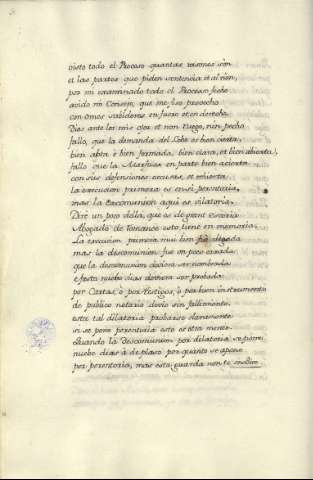 visto todo el Proceso quantas razones son
et las partes que piden sentencia et al non,
por mi examinado todo el Proceso fecho
avido mi Consejo, que me fiso provecho
con omes sabidores en fuero et en derecho
Dios ante los mis ojos et non ruego, nin pecho
fallo, que la demanda del Lobo es bien cierta,
bien apta è bien formada, bien clara, et bien abierta,
fallo que la Marfusa en parte bien acierta
con sus defensiones excusas, et enxerta
la execucion primera es en sí perentoria,
mas la Excomunion aqui es dilatoria.
Dire un poco della, que es de grant estoria
Abogado de Romance esto tiene en memoria.
La esencion primera muy bien fue alegada
mas la descomunion fue un poco errada
que la descomunion deviera ser nombrada
e fasta nueve dias deviera ser probada
por Cartas, o por testigos, o por bien instrumento
de publico notario devie sin fallimento
esta tal dilatoria probarse claramente
si se pone perentoria esto es otra mente
Quando la Descomunion por dilatoria se pone,
nuebe dias à de plaso por quanto se opone
por perentoria, mas esta guarda non te